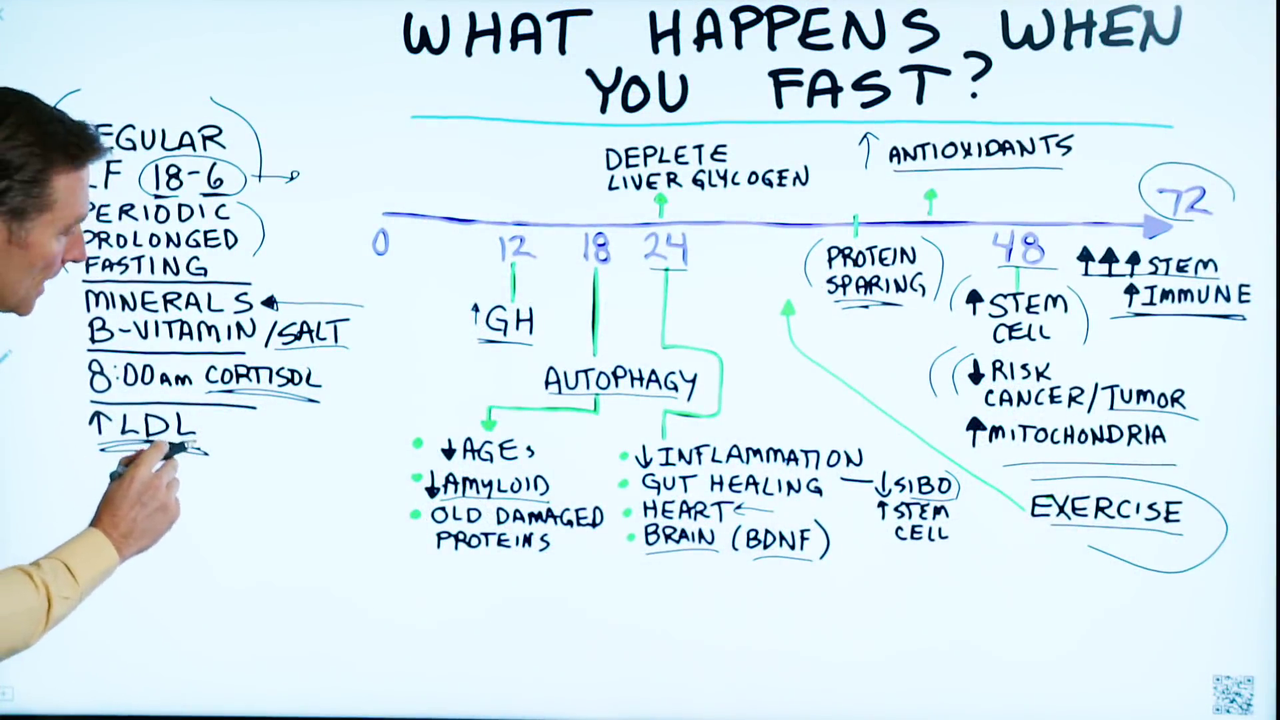 WHAT HAPPENS WHEN
YOU FAST?
EGULAR
F 18-6
PERIODIC
PROLONGED
FASTING
MINERALS
B-VITAMIN/SALT
8:00am CORTISOL
↑LDL
DEPLETE
LIVER GLYCOGEN
↑ ANTIOXIDANTS
0
12
18
24
48
72
↑GH
AUTOPHAGY
(PROTEIN
SPARING)
↑STEM
CELL
↓RISK
CANCER/TUMOR
↑MITOCHONDRIA
↑↑↑STEM
↑IMMUNE
↓AGEs
↓AMYLOID
• OLD DAMAGED
PROTEINS
• ↓INFLAMMATION
• GUT HEALING — ↓SIBO
↑STEM
CELL
• HEART←
• BRAIN (BDNF)
EXERCISE